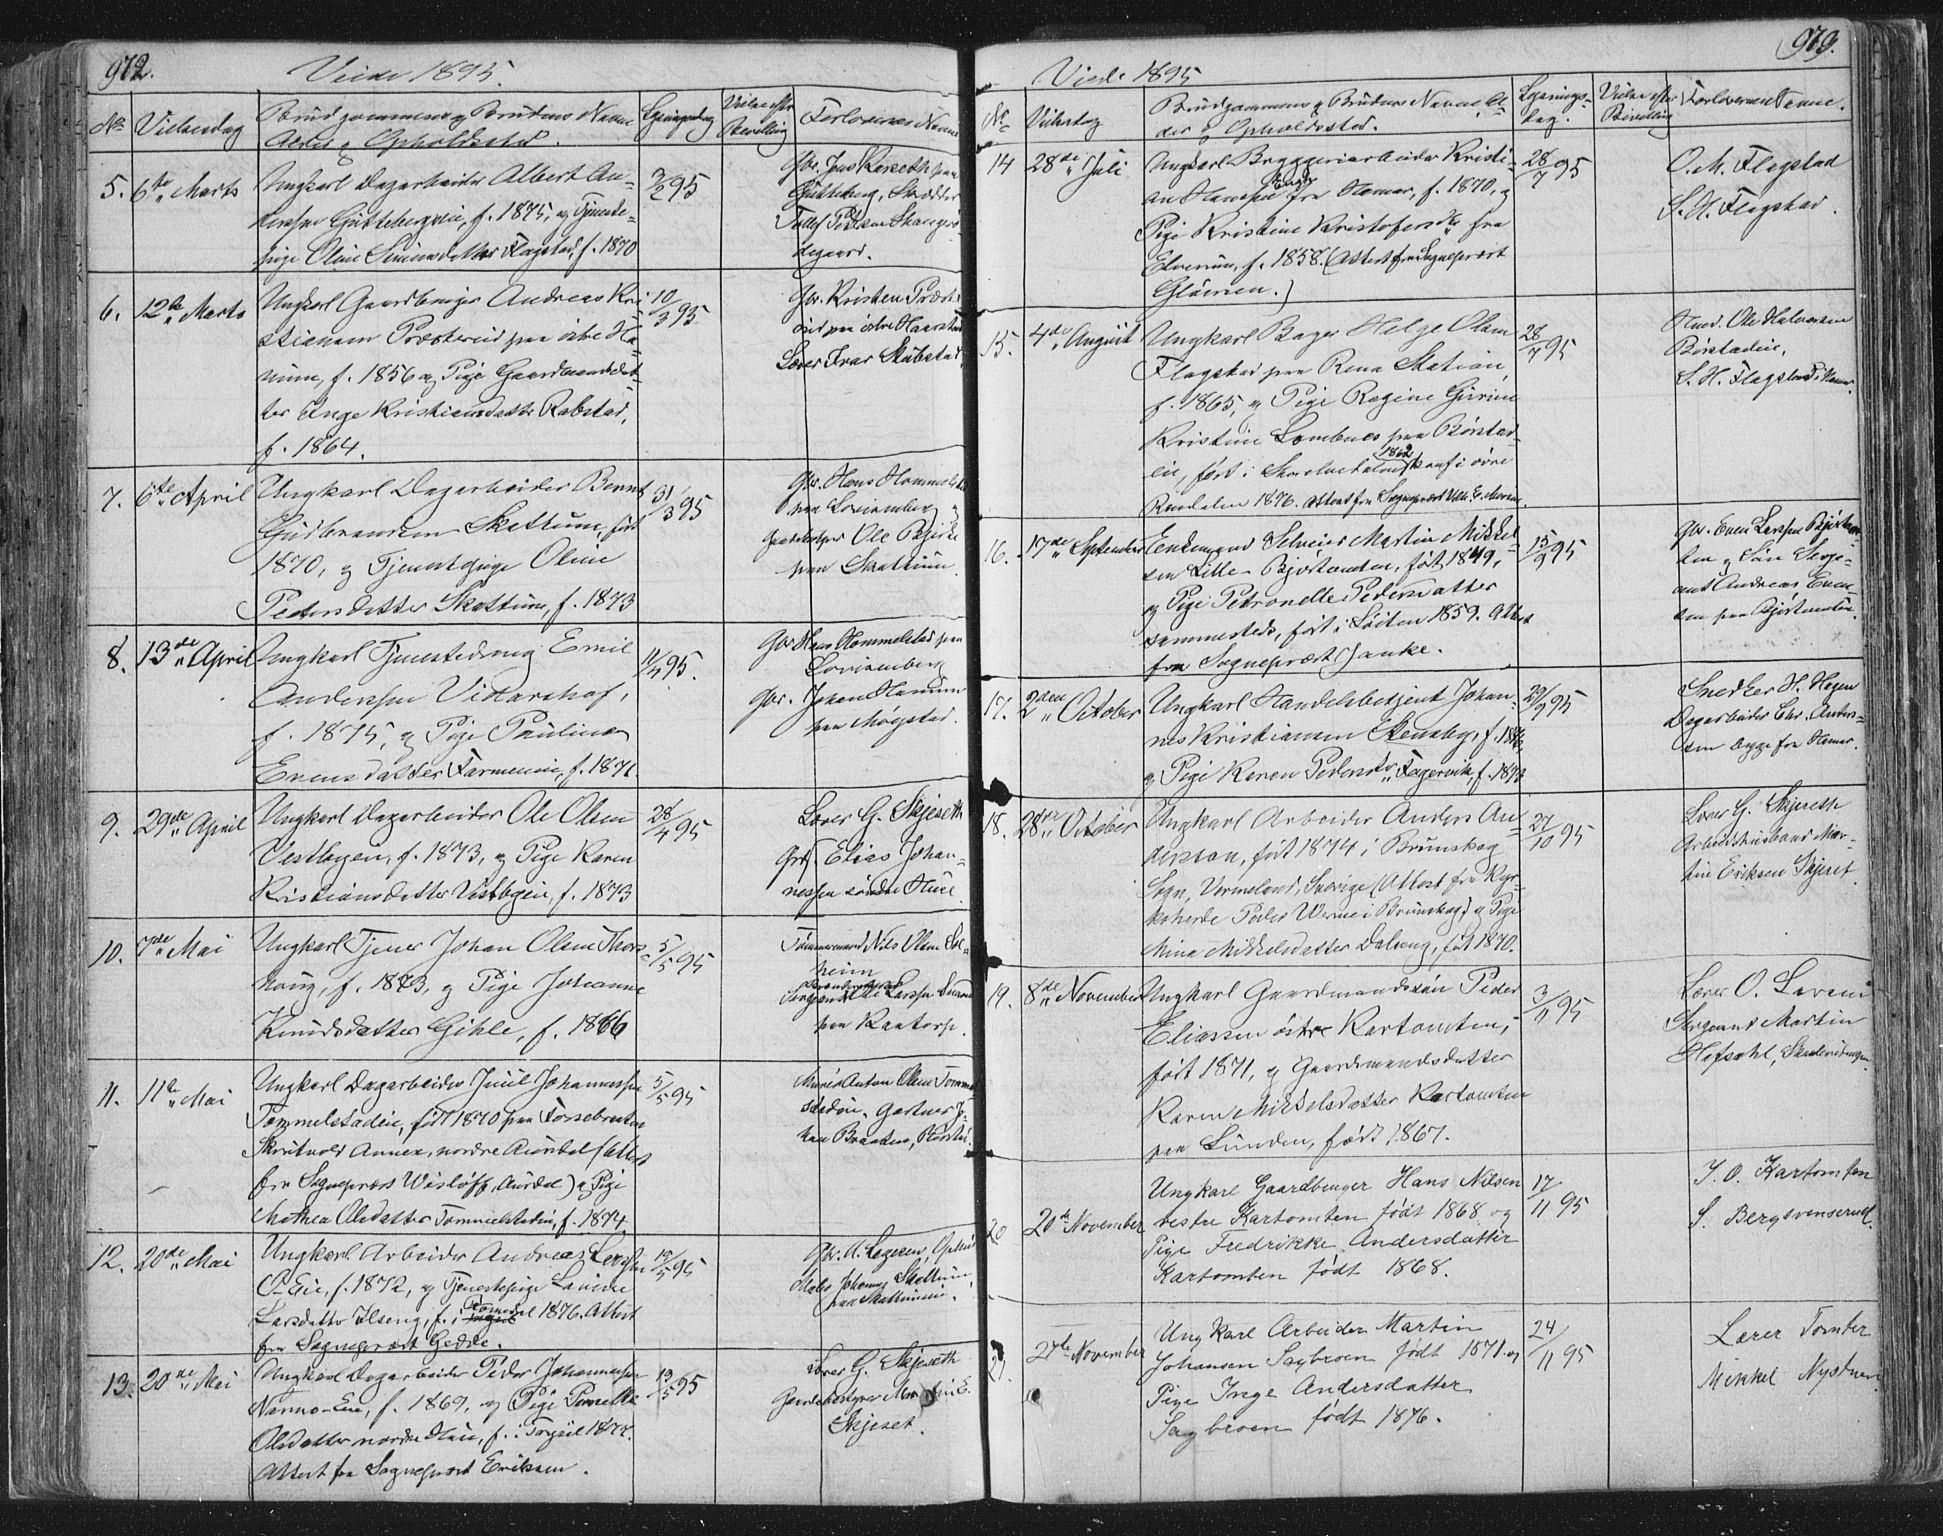 972.
Viede 1895.
No
Vielsesdag
Brudgommens og Brudens Navne
Alder og Opholdssted.
Vielse efter
Bevilling
Forlovernes Navne
5. 6te Marts
Ungkarl Dagarbeider Albert An-
derssen Gutteberg eie, f. 1875, og Tjeneste-
pige Oline Simensdatter Flagstad, f. 1870
3/2 95
Gbr. Jens Karseth paa
Gutteberg, Skrædder
degaard.
6. 12te Marts
Ungkarl Gaardbruger Andreas Kri
stiansen Præsterud paa øvre Ha-
mun, f. 1856 og Pige Gaardmandsdat-
ter Inge Kristiansdatter Rabstad,
f. 1864.
10/3 95
Gbr. Kristen Præste
rud paa østre
Lærer Ivar Skabstad
7. 6te April
Ungkarl Dagarbeider Bernt
Gudbrandsen Skattum, født
1870, og Tjenestepige Oline
Pedersdatter Skattum, f. 1873
31/3 95
Gbr. Hans Hommelstad
paa Lovisenberg og
Gaardbestyrer Ole Bjerke
paa Skattum
8. 13de April
Ungkarl Tjenestedreng Emil
Anderssen Vidarshof,
f. 1875, og Pige Pauline
Evensdatter Farmeneie, f. 1871.
11/4 95.
Gbr Hans Hommelstad paa
Lovisenberg
Gbr. Johan Hamum
paa Møystad.
9. 29de April
Ungkarl Dagarbeider Ole Olsen
Vestbyeie, f. 1873, og Pige Karen
Kristiansdatter Vestbyeie, f. 1873
28/4 95
Lærer G. Skjeseth
Gbr. Elias Johan-
nessen søndre Hie
10. 7de Mai
Ungkarl Tjener Johan Olsen Thors
houg, f. 1873, og Pige Johanne
Knudsdatter Gihle, f. 1866
5/5 95
Tømmermand Nils Olsen Sol-
heim
Sergeant Ole Larssen
paa Kaatorp.
11. 11te Mai
Ungkarl Dagarbeider Juul Johannessen
Tommelstadeie, født 1870 paa
Annex, nordre Aurdal (Attest
fra Sogneprest Wisløff, Aurdal) og Pige
Mathea Olsdatter Tommelstadeie, f. 1874
5/5 95
Murer Anton Olsen Tommel
stadeie, Gartner Jo-
han Braaten,
12. 20de Mai
Ungkarl Arbeider Andreas Larssen
f. 1872, og Tjenestepige Lovise
Larsdatter Ilseng, f. i Romedal 1876. Attest
fra Sogneprest Gedde.
19/5 95
Gbr. A. Lageren,
Maler Johannes Skattum
paa Skattumeie.
13. 20de Mai
Ungkarl Dagarbeider Peder Johannessen
Nanno-Eie, f. 1869, og Pige Pernille
Olsdatter nordre Hie, f. i Trysil 1877.
Attest fra Sogneprest Eriksen.
19/5 95
Lærer G. Skjeseth
Gaardbestyrer Martin E.
Skjeset.
973.
Viede 1895
No
Vielsesdag
Brudgommens og Brudens Navne Al-
der og Opholdssted.
Lysnings-
dag.
Vielse efter
Bevilling
Forlovernes Navne.
14 28de Juli
Ungkarl Bryggeriarbeider Kristi-
an Hansen Enger fra Hamar, f. 1870, og
Pige Kristine Kristofersdtr fra
Elverum, f. 1858. (Attest fra Sogneprest
Gløersen.)
28/7 95
O. M. Flagstad
S. H. Flagstad.
15. 4de August
Ungkarl Bager Helge Olsen
Flagstad paa Rena Station,
f. 1865, og Pige Regine Gurine
Kristine Lombnes paa Børstad-
eie, født i 1862 konf i øvre
Rendalen 1876. Attest fra Sogneprest
28/7 95
Husm. Ole Halvorsen
Børstadeie,
S. H. Flagstad, Hamar.
16. 17de September
Enkemand Selveier Martin Mikkel-
sen Lille-Bjørtomten, født 1849,
og Pige Petronelle Pedersdatter
sammesteds, født i Løiten 1859. Attest
fra Sogneprest Hanke.
15/9 95
Gbr. Even Larssen Bjørtom-
ten og Søn Serge-
ant Andreas Even-
sen paa Bjørtomten.
17. 2den October
Ungkarl Handelsbetjent Johan-
nes Kristiansen Stensby, f. 1876,
og Pige Karen Pedersdtr. Fagervik, f. 1873
29/9 95
Snedker H. Hagen
Dagarbeider Chr. Anders-
sen begge fra Hamar.
18. 28de October
Ungkarl Arbeider Anders An-
dersson, født 1874 i Brunskog
Sogn, Vermeland, Sverige (Attest fra Kyr-
koherde Peder Werme i Brunskog) og Pige
Mina Mikkelsdatter Dalseng, født 1870.
27/10 95
Lærer G. Skjeseth
Arbeidshusband Mar-
tin Eriksen Skjeset
19. 8de November
Ungkarl Gaardmandssøn Peder
Eliassen østre Kartomten,
født 1871, og Gaardmandsdatter
Karen Mikkelsdatter Kartomten
paa Lunden, født 1867.
3/11 95
Lærer O. Laveni
Sergeant Martin
Hofsahl,
20 20de November
Ungkarl Gaardbruger Hans Nilsen
vestre Kartomten født 1868 og
Pige Fredrikke Andersdatter
Kartomten født 1868.
17/11 95
J. O. Kartomten
S. Bergsvenserud.
21. 27de November
Ungkarl Arbeider Martin
Johansen Sagbroen født 1871 og
Pige Inge Andersdatter
Sagbroen født 1876.
24/11 95
Lærer Tomter
Mikkel Nystuen